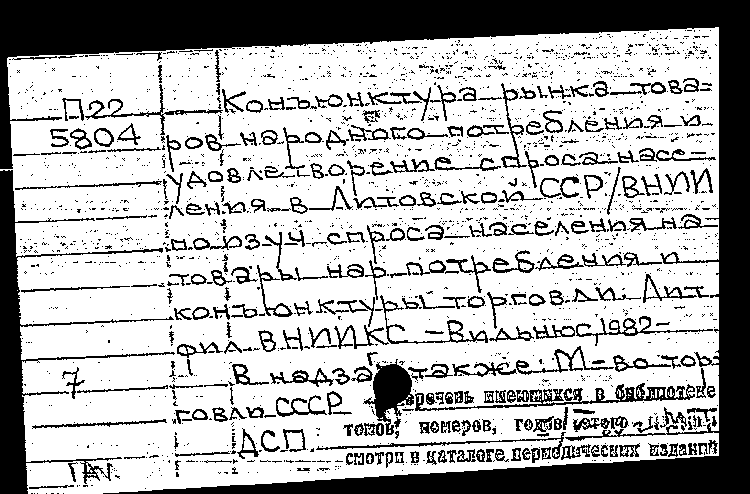 П22
5804
Конъюнктура рынка това=
ров народного потребления и
удовлетворение спроса насе=
ления в Литовской ССР/ВНИИ
по изуч. спроса населения на
товары нар. потребления и
конъюнктуры торговли. Лит.
фил. ВНИИКС. –Вильнюс, 1982–
7
В надзаг. также: М=во тор=
говли СССР
ДСП.
Перечень имеющихся в библиотеке
томов, номеров, годов этого
смотри в каталоге периодических изданий